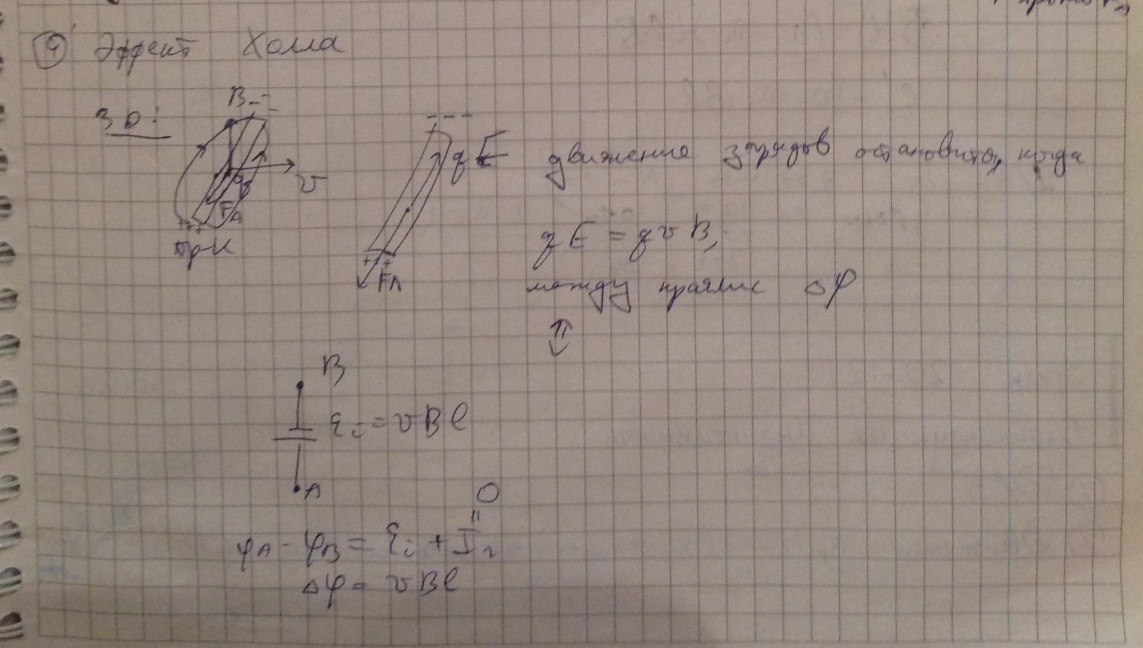 ④ Эффект Холла
3D:
B - -
v
q
FЛ
+++
пр-к
- - -
qE
++
FЛ
движение зарядов остановится, когда
qE = qvB,
между краями Δφ
⇕
B
Ɛi = vBl
A
0
=
φA - φB = Ɛi + Ir
Δφ = vBl